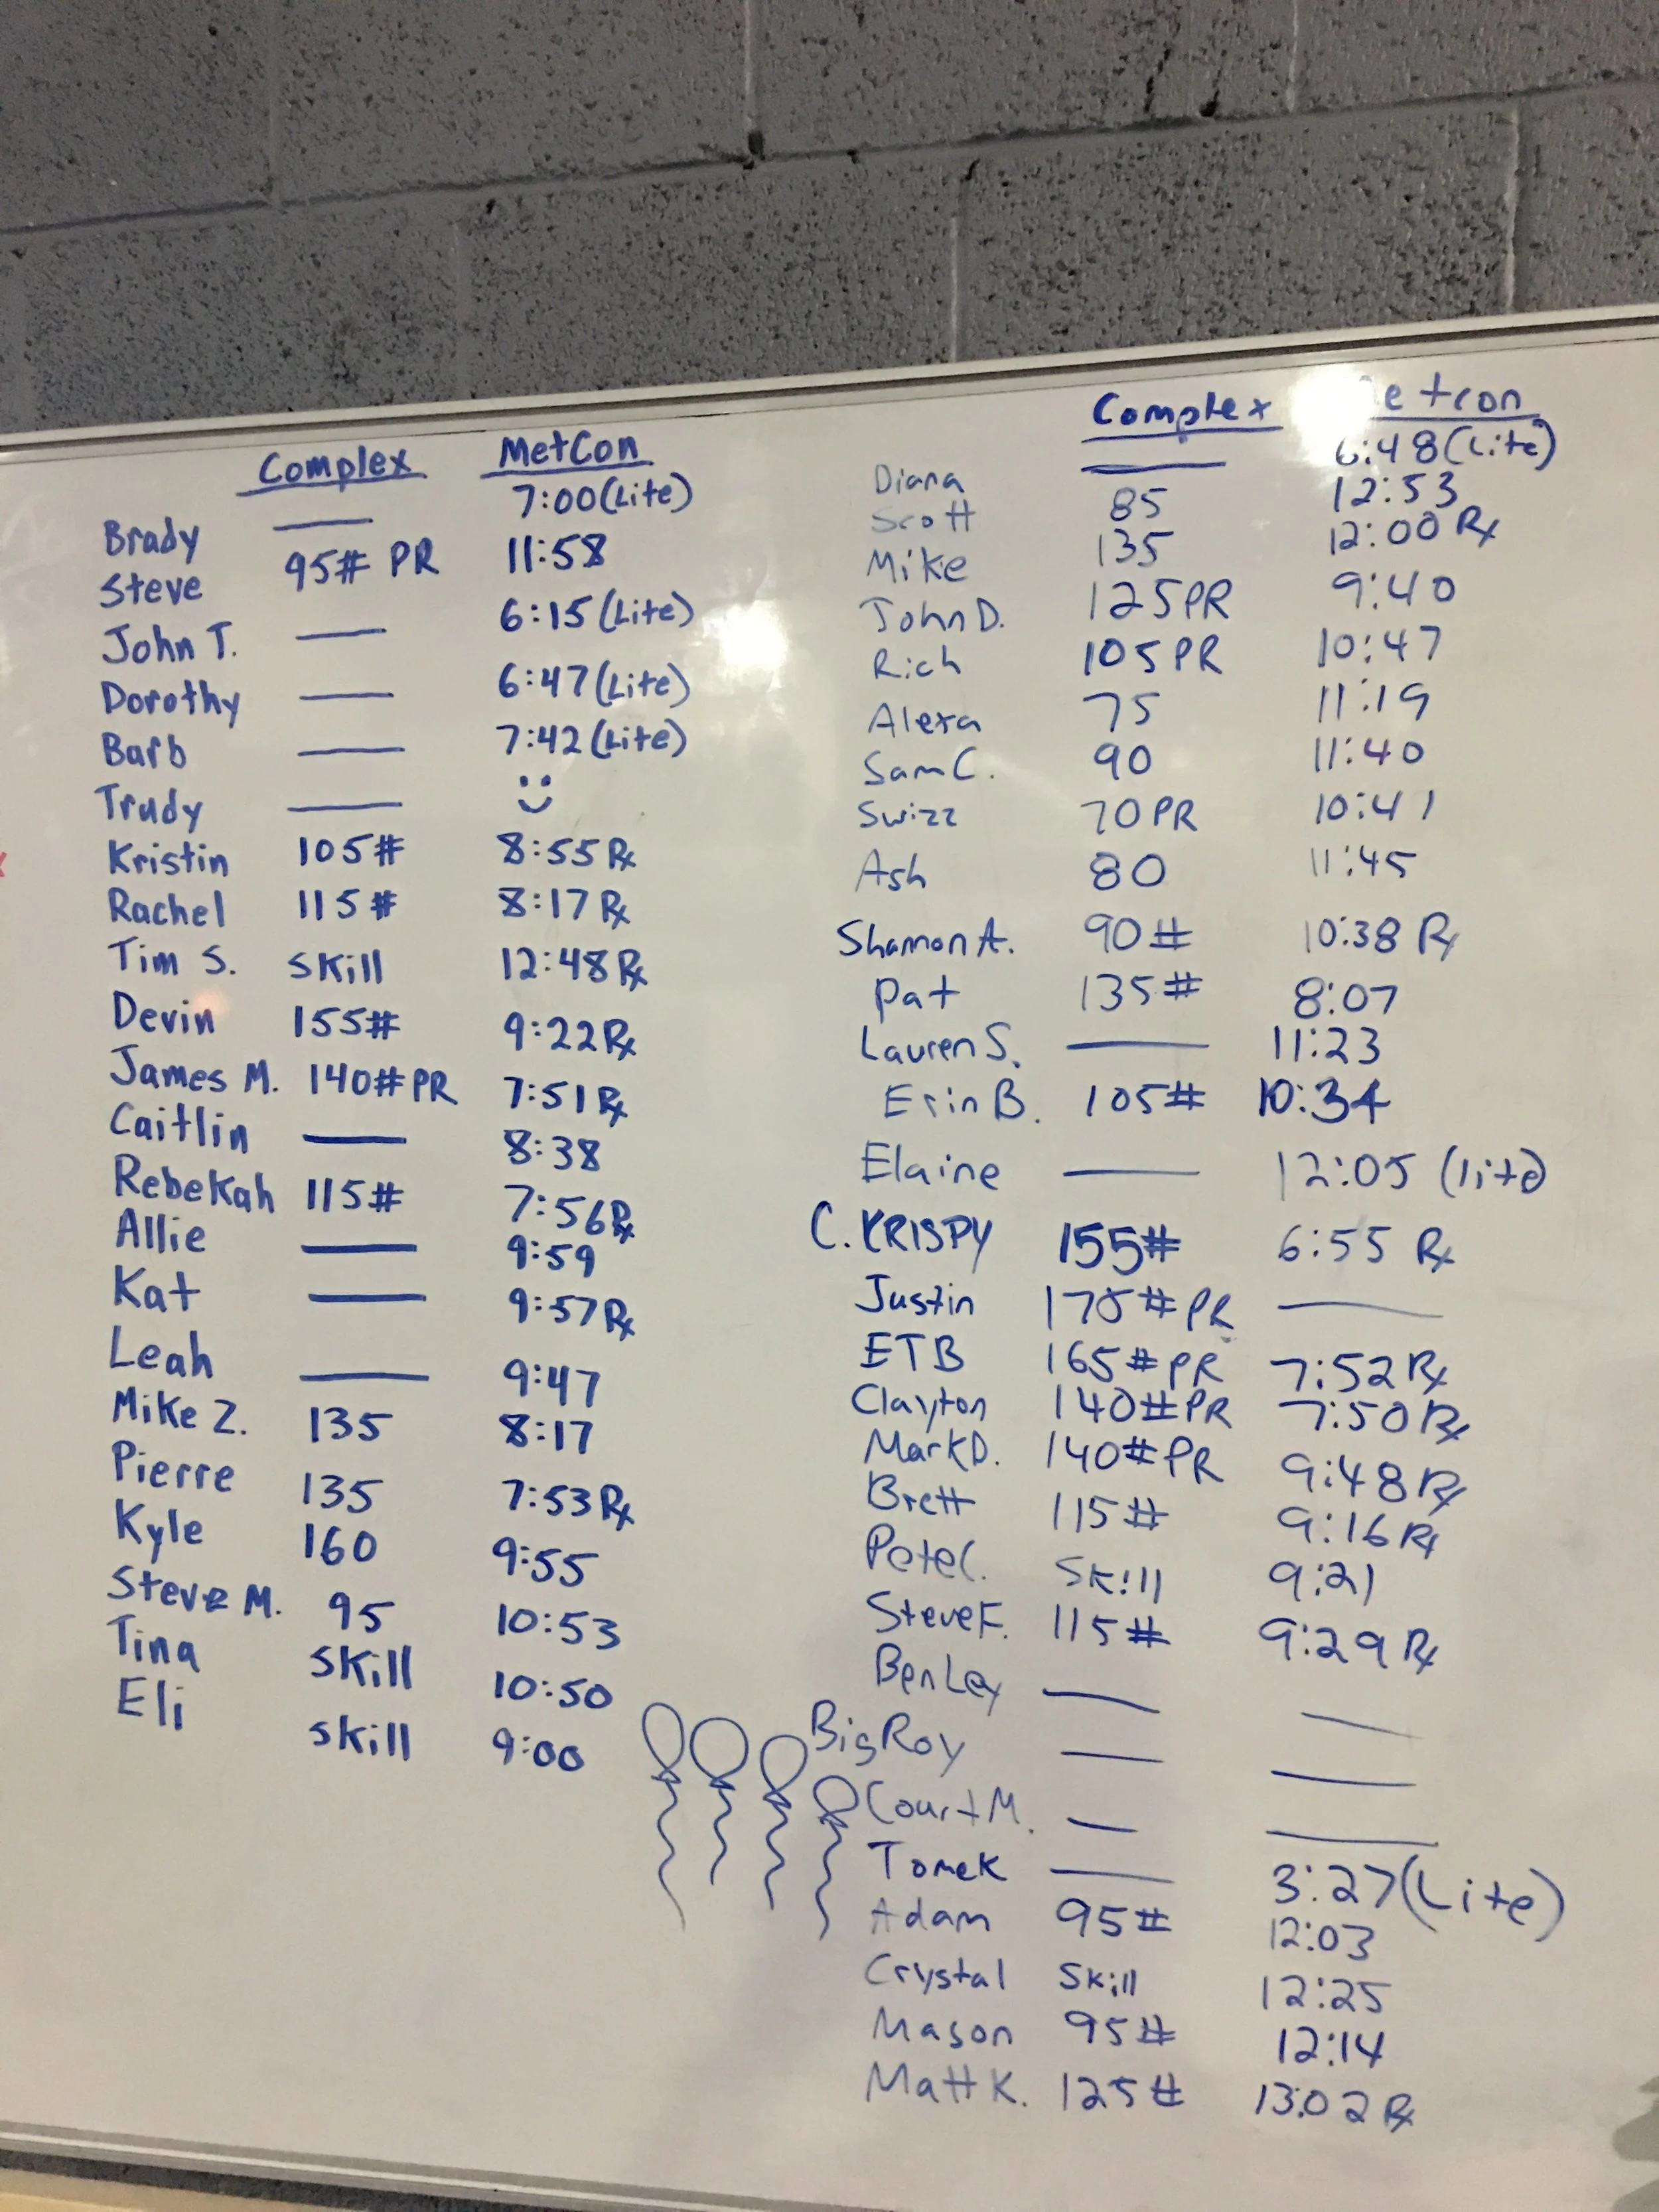 Complex MetCon
Brady —— 7:00 (Lite)
Steve 95# PR 11:58
John T. —— 6:15 (Lite)
Dorothy —— 6:47 (Lite)
Barb —— 7:42 (Lite)
Trudy —— Ü
Kristin 105# 8:55 Rx
Rachel 115# 8:17 Rx
Tim S. Skill 12:48 Rx
Devin 155# 9:22 Rx
James M. 140# PR 7:51 Rx
Caitlin —— 8:38
Rebekah 115# 7:56 Rx
Allie —— 9:59
Kat —— 9:57 Rx
Leah —— 9:47
Mike Z. 135 8:17
Pierre 135 7:53 Rx
Kyle 160 9:55
Steve M. 95 10:53
Tina Skill 10:50
Eli Skill 9:00
Complex etcon
Diana —— 6:48 (Lite)
Scott 85 12:53
Mike 135 12:00 Rx
John D. 125 PR 9:40
Rich 105 PR 10:47
Alexa 75 11:19
Sam C. 90 11:40
Swizz 70 PR 10:41
Ash 80 11:45
Shannon A. 90# 10:38 Rx
Pat 135# 8:07
Lauren S. —— 11:23
Erin B. 105# 10:34
Elaine —— 12:05 (lite)
C. KRISPY 155# 6:55 Rx
Justin 175# PR ——
ETB 165# PR 7:52 Rx
Clayton 140# PR 7:50 Rx
Mark D. 140# PR 9:48 Rx
Brett 115# 9:16 Rx
Pete C. Skill 9:21
Steve F. 115# 9:29 Rx
Ben Ley —— ——
Big Roy —— ——
Court M. —— ——
Tomek —— 3:27 (Lite)
Adam 95# 12:03
Crystal Skill 12:25
Mason 95# 12:14
Matt K. 125# 13:02 Rx